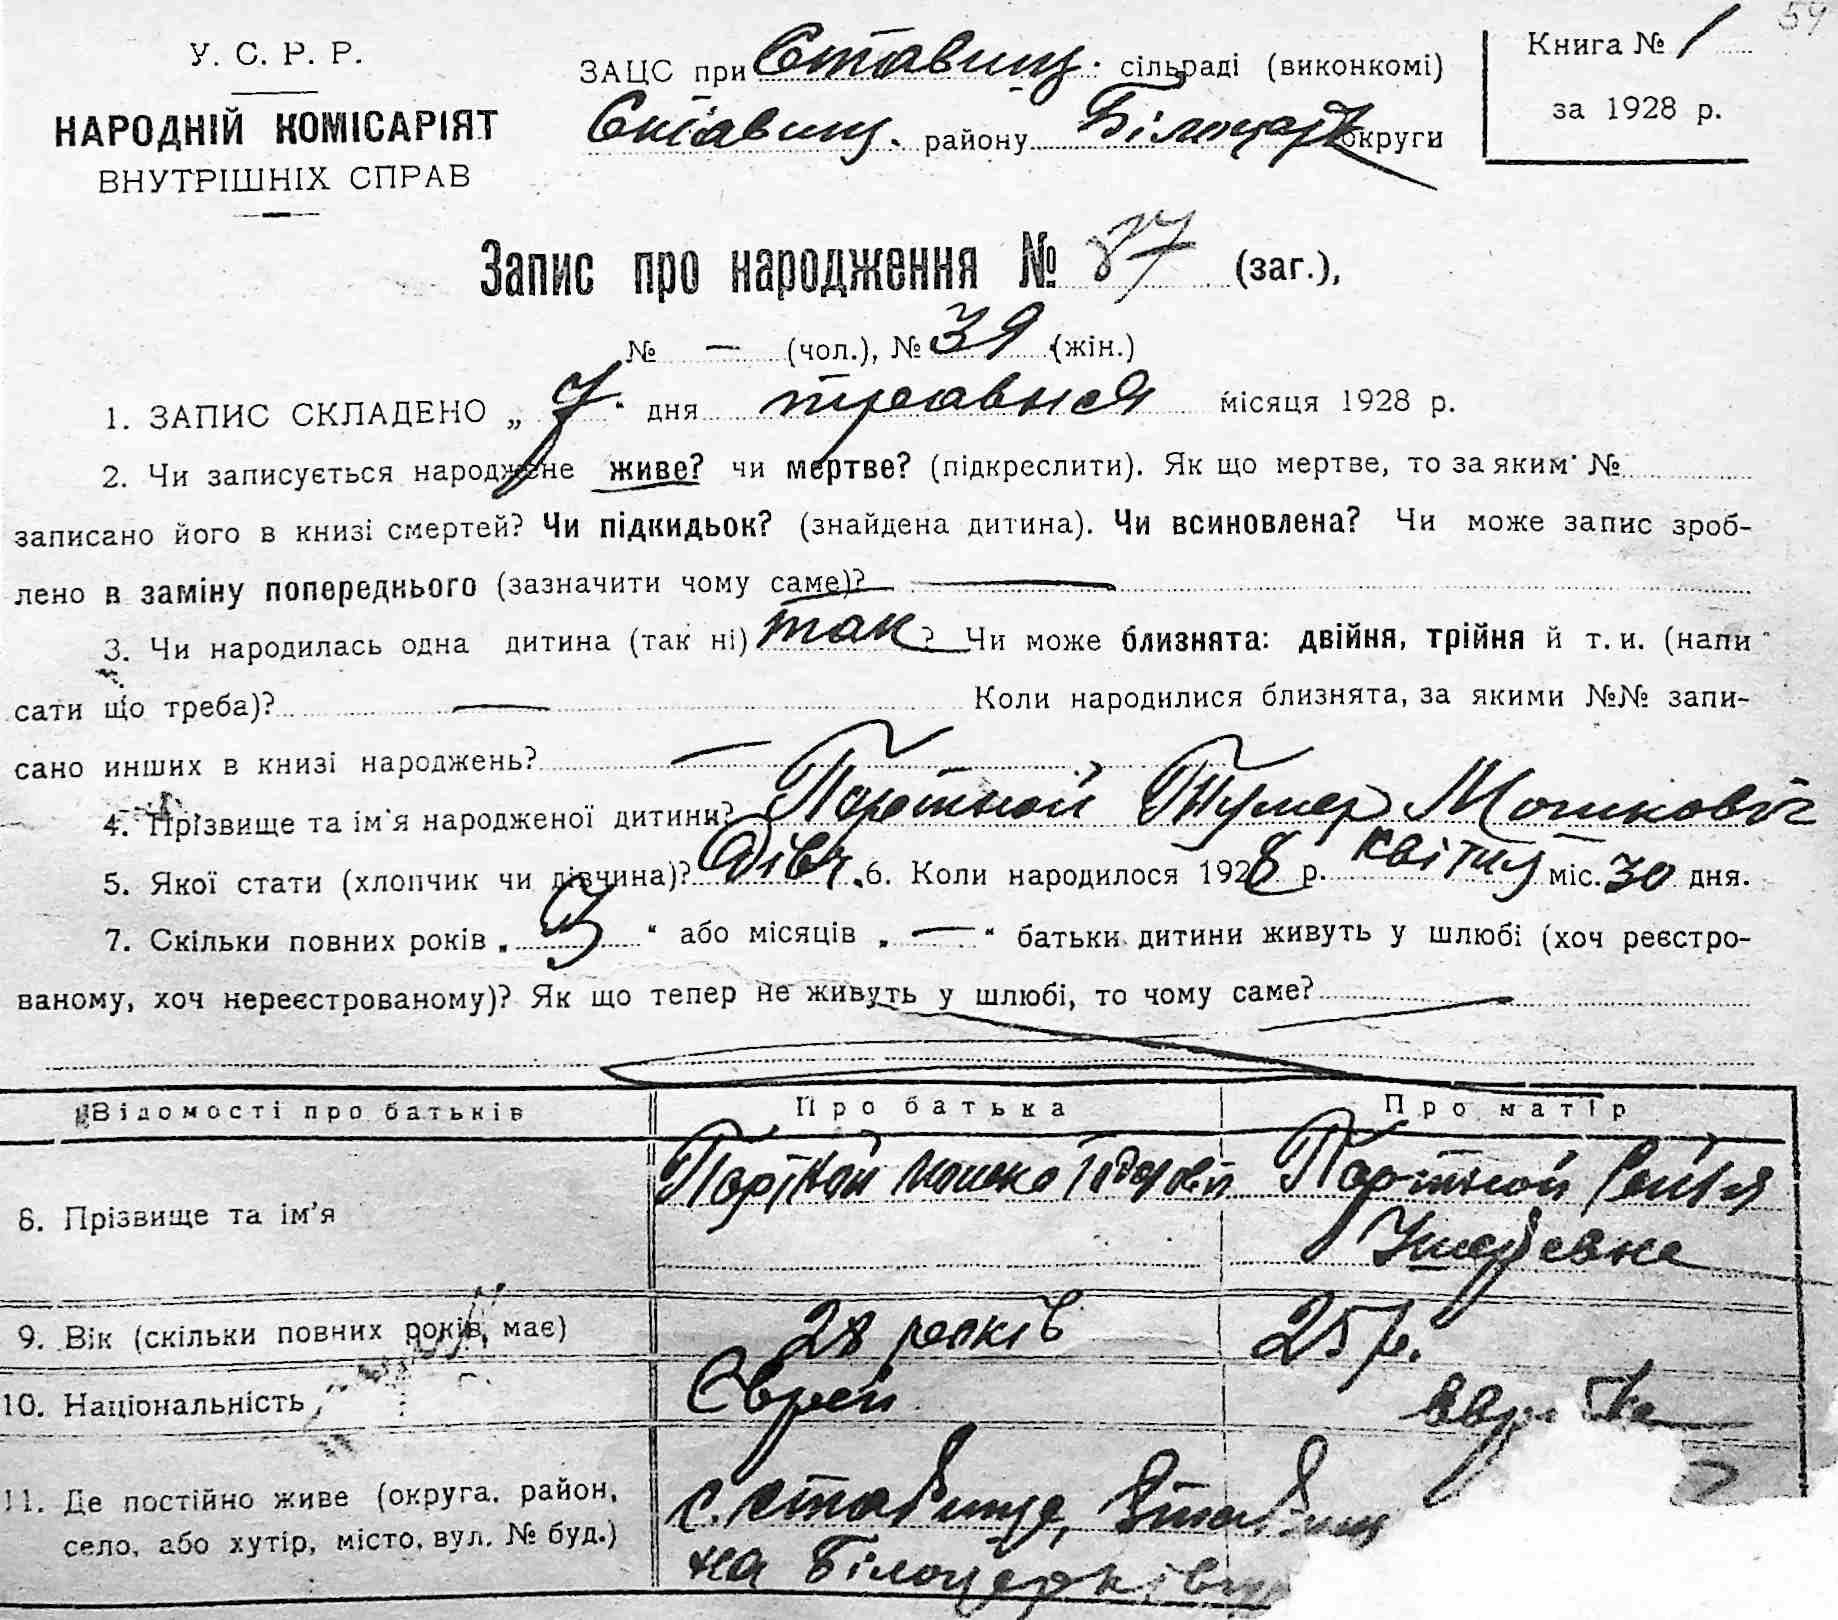 59
У. С. Р. Р.
НАРОДНІЙ КОМІСАРІЯТ
ВНУТРІШНІХ СПРАВ
ЗАЦС при Ставищ. сільраді (виконкомі)
Ставищ. району Білоцерк округи
Книга № 1
за 1928 р.
Запис про народження № 87 (заг.),
№ — (чол.), № 39 (жін.)
1. ЗАПИС СКЛАДЕНО „ 7 “ дня травня місяця 1928 р.
2. Чи записується народжене живе? чи мертве? (підкреслити). Як що мертве, то за яким №
записано його в книзі смертей? Чи підкидьок? (знайдена дитина). Чи всиновлена? Чи може запис зроб-
лено в заміну попереднього (зазначити чому саме)? —
3. Чи народилась одна дитина (так ні) так ? Чи може близнята: двійня, трійня й т. и. (напи
сати що треба)? — Коли народилися близнята, за якими №№ запи-
сано инших в книзі народжень? —
4. Прізвище та ім'я народженої дитини? Портной Тумер Мошкович
5. Якої стати (хлопчик чи дівчина)? Дівч. 6. Коли народилося 1928 р. квітня міс. 30 дня.
7. Скільки повних років „ 3 “ або місяців „ — “ батьки дитини живуть у шлюбі (хоч реєстро-
ваному, хоч нереєстрованому)? Як що тепер не живуть у шлюбі, то чому саме?
Відомості про батьків Про батька Про матір
8. Прізвище та ім'я Портной Мошко Портной Рейзя
9. Вік (скільки повних років має) 28 років 25 р.
10. Національність Єврей
11. Де постійно живе (округа, район, с. Ставище, Ставищ
село, або хутір, місто, вул. № буд.) на Білоцерківщ